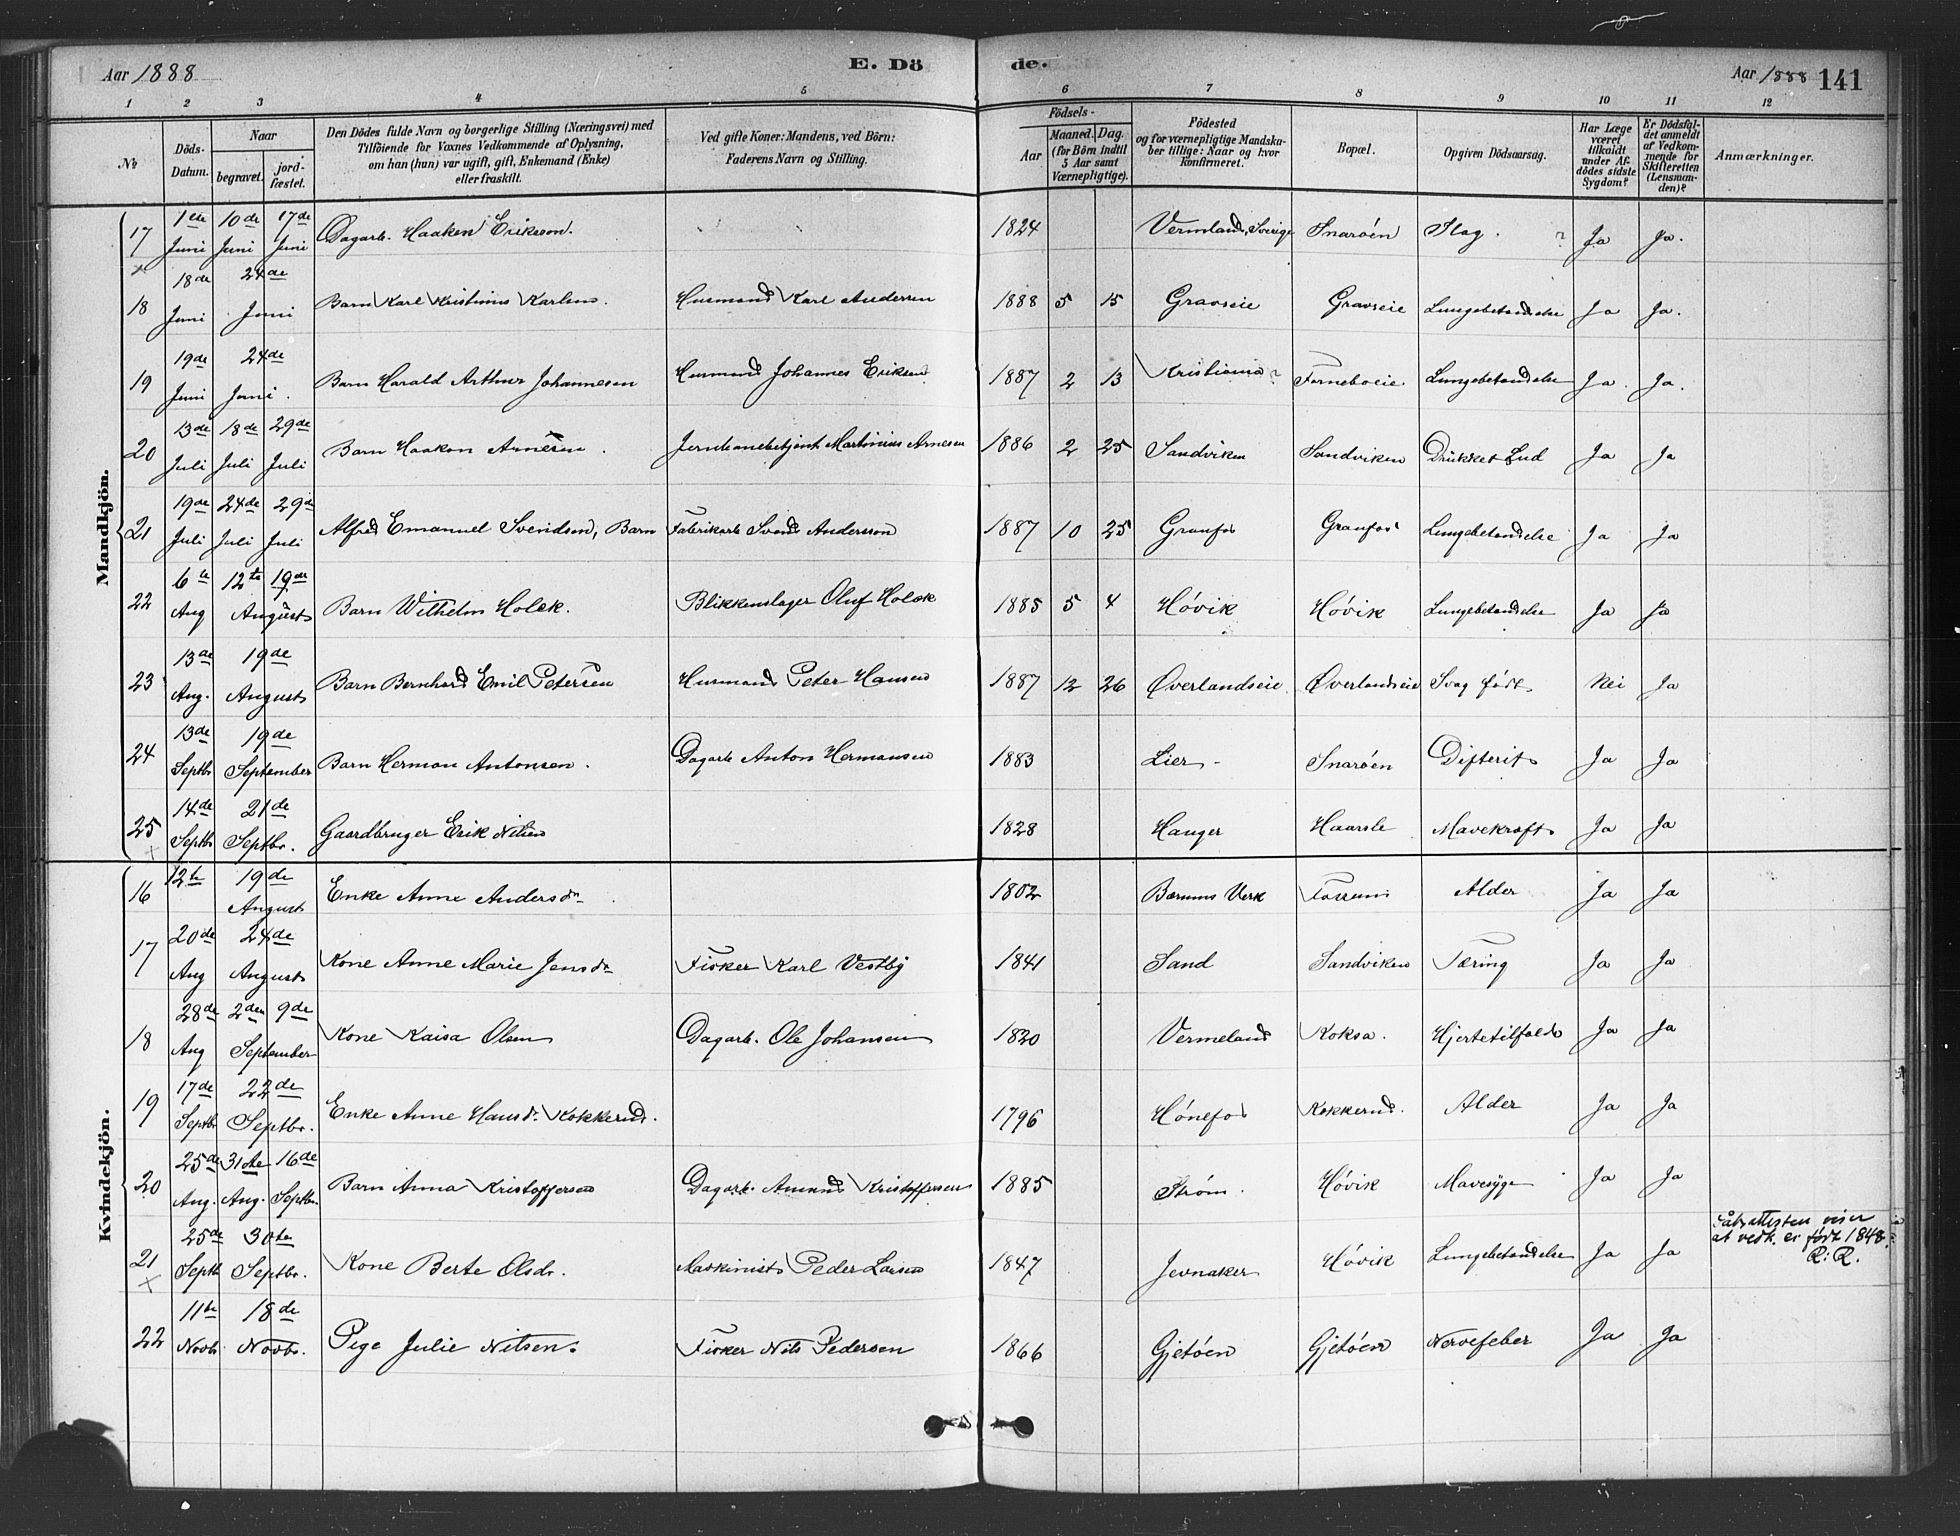 Aar 1888
E. Dö
de.
Aar 1888 141
1 2 3 4 5 6 7 8 9 10 11 12
No
Döds-Datum.
Naar
begravet.
jordfæstet.
Den Dödes fulde Navn og borgerlige Stilling (Næringsvei) med
Tilföiende for Voxnes Vedkommende af Oplysning,
om han (hun) var ugift, gift, Enkemand (Enke)
eller fraskilt.
Ved gifte Koner: Mandens, ved Börn:
Faderens Navn og Stilling.
Födsels-
Aar
Maaned. Dag.
(for Börn indtil
5 Aar samt
Værnepligtige).
Födested
og for værnepligtige Mandskaber tillige: Naar og hvor
Konfirmeret.
Bopæl.
Opgiven Dödsaarsag.
Har Læge
været
tilkaldt
under Afdödes sidste
Sygdom?
Er Dödsfaldet anmeldt
af Vedkommende for
Skifteretten
(Lensmanden)?
Anmærkninger.
Mandkjön.
17 1ste Juni 10de Juni 17de Juni Dagarb. Haaken Erikson. 1824 Vermland, Sverige Snarøen Slag. ? Ja Ja.
18 18de Juni 24de Juni Barn Karl Kristinius Karlsen. Husmand Karl Andersen 1888 5 15 Gravseie Gravseie Lungebetændelse Ja Ja.
19 19de Juni 24de Juni. Barn Harald Arthur Johannesen Husmand Johannes Eriksen 1887 2 13 Kristiania? Forneboeie Lungebetændelse Ja. Ja.
20 13de Juli 18de Juli 29de Juli Barn Haakon Arnesen. Jernbanebetjent Martinius Arnesen 1886 2 25 Sandviken Sandviken Drukket Lud Ja Ja
21 19de Juli 24de Juli 29de Juli Alfred Emanuel Svendsen, Barn Fabrikarb Svend Andersson 1887 10 25 Granfos Granfos Lungebetændelse Ja Ja
22 6te Aug 12te 19de August Barn Wilhelm Holck. Blikkenslager Oluf Holck 1885 5 4 Høvik Høvik Lungebetændelse Ja Ja
23 13de Aug. 19de August Barn Bernhard Emil Petersen Husmand Peter Hansen 1887 12 26 Øverlandseie Øverlandseie Svag født Nei Ja
24 13de Septbr 19de September Barn Herman Antonsen. Dagarb Anton Hermansen 1883 Lier Snarøen Difterit Ja Ja
25 14de Septbr 21de Septbr. Gaardbruger Erik Nilsen 1828 Hanger Haarsle Mavekræft Ja Ja
Kvindekjön.
16 12te 19de August Enke Anne Andersdr 1802 Bærums Verk Fossum Alder Ja Ja
17 20de Aug 24de August Kone Anne Marie Jensdr Fisker Karl Vestby 1841 Sand Sandviken Tæring Ja Ja
18 28de Aug 2den 9de September Kone Kaisa Olsen Dagarb. Ole Johansen 1820 Vermeland Koksa. Hjertetilfælde Ja Ja
19 17de Septbr 22de Septbr. Enke Anne Hansdr. Kokkerud. 1796 Hønefos Kokkerud. Alder Ja Ja
20 25de Aug. 31te Aug. 16de Septbr. Barn Anna Kristoffersen Dagarb. Amund Kristoffersen 1885 Strøm. Høvik Mavesyge Ja Ja
21 25de Septb 30te Septbr. Kone Berte Olsdr. Maskinist Peder Larsen 1847 Jevnaker Høvik Lungebetændelse Ja Ja Dåbsattesten viser
at vedk. er født 1848.
R.R.
22 11te Novb. 18de Novbr. Pige Julie Nilsen. Fisker Nils Pedersen 1866 Gjetøen Gjetøen Nervefeber Ja Ja